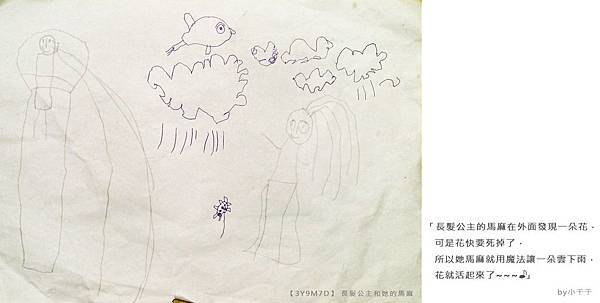 【3Y9M7D】 長髮公主和她的馬麻
「長髮公主的馬麻在外面發現一朵花，
可是花快要死掉了，
所以她馬麻就用魔法讓一朵雲下雨，
花就活起來了~~~♪」
by小千千